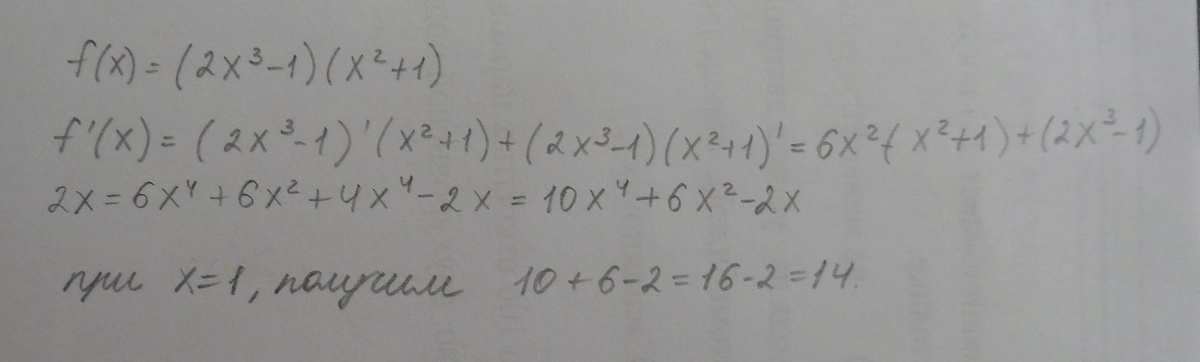 f(x) = (2x³-1)(x²+1)
f'(x) = (2x³-1)'(x²+1)+(2x³-1)(x²+1)' = 6x²(x²+1)+(2x³-1)
2x = 6x⁴+6x²+4x⁴-2x = 10x⁴+6x²-2x
при x=1, получим 10+6-2=16-2=14.